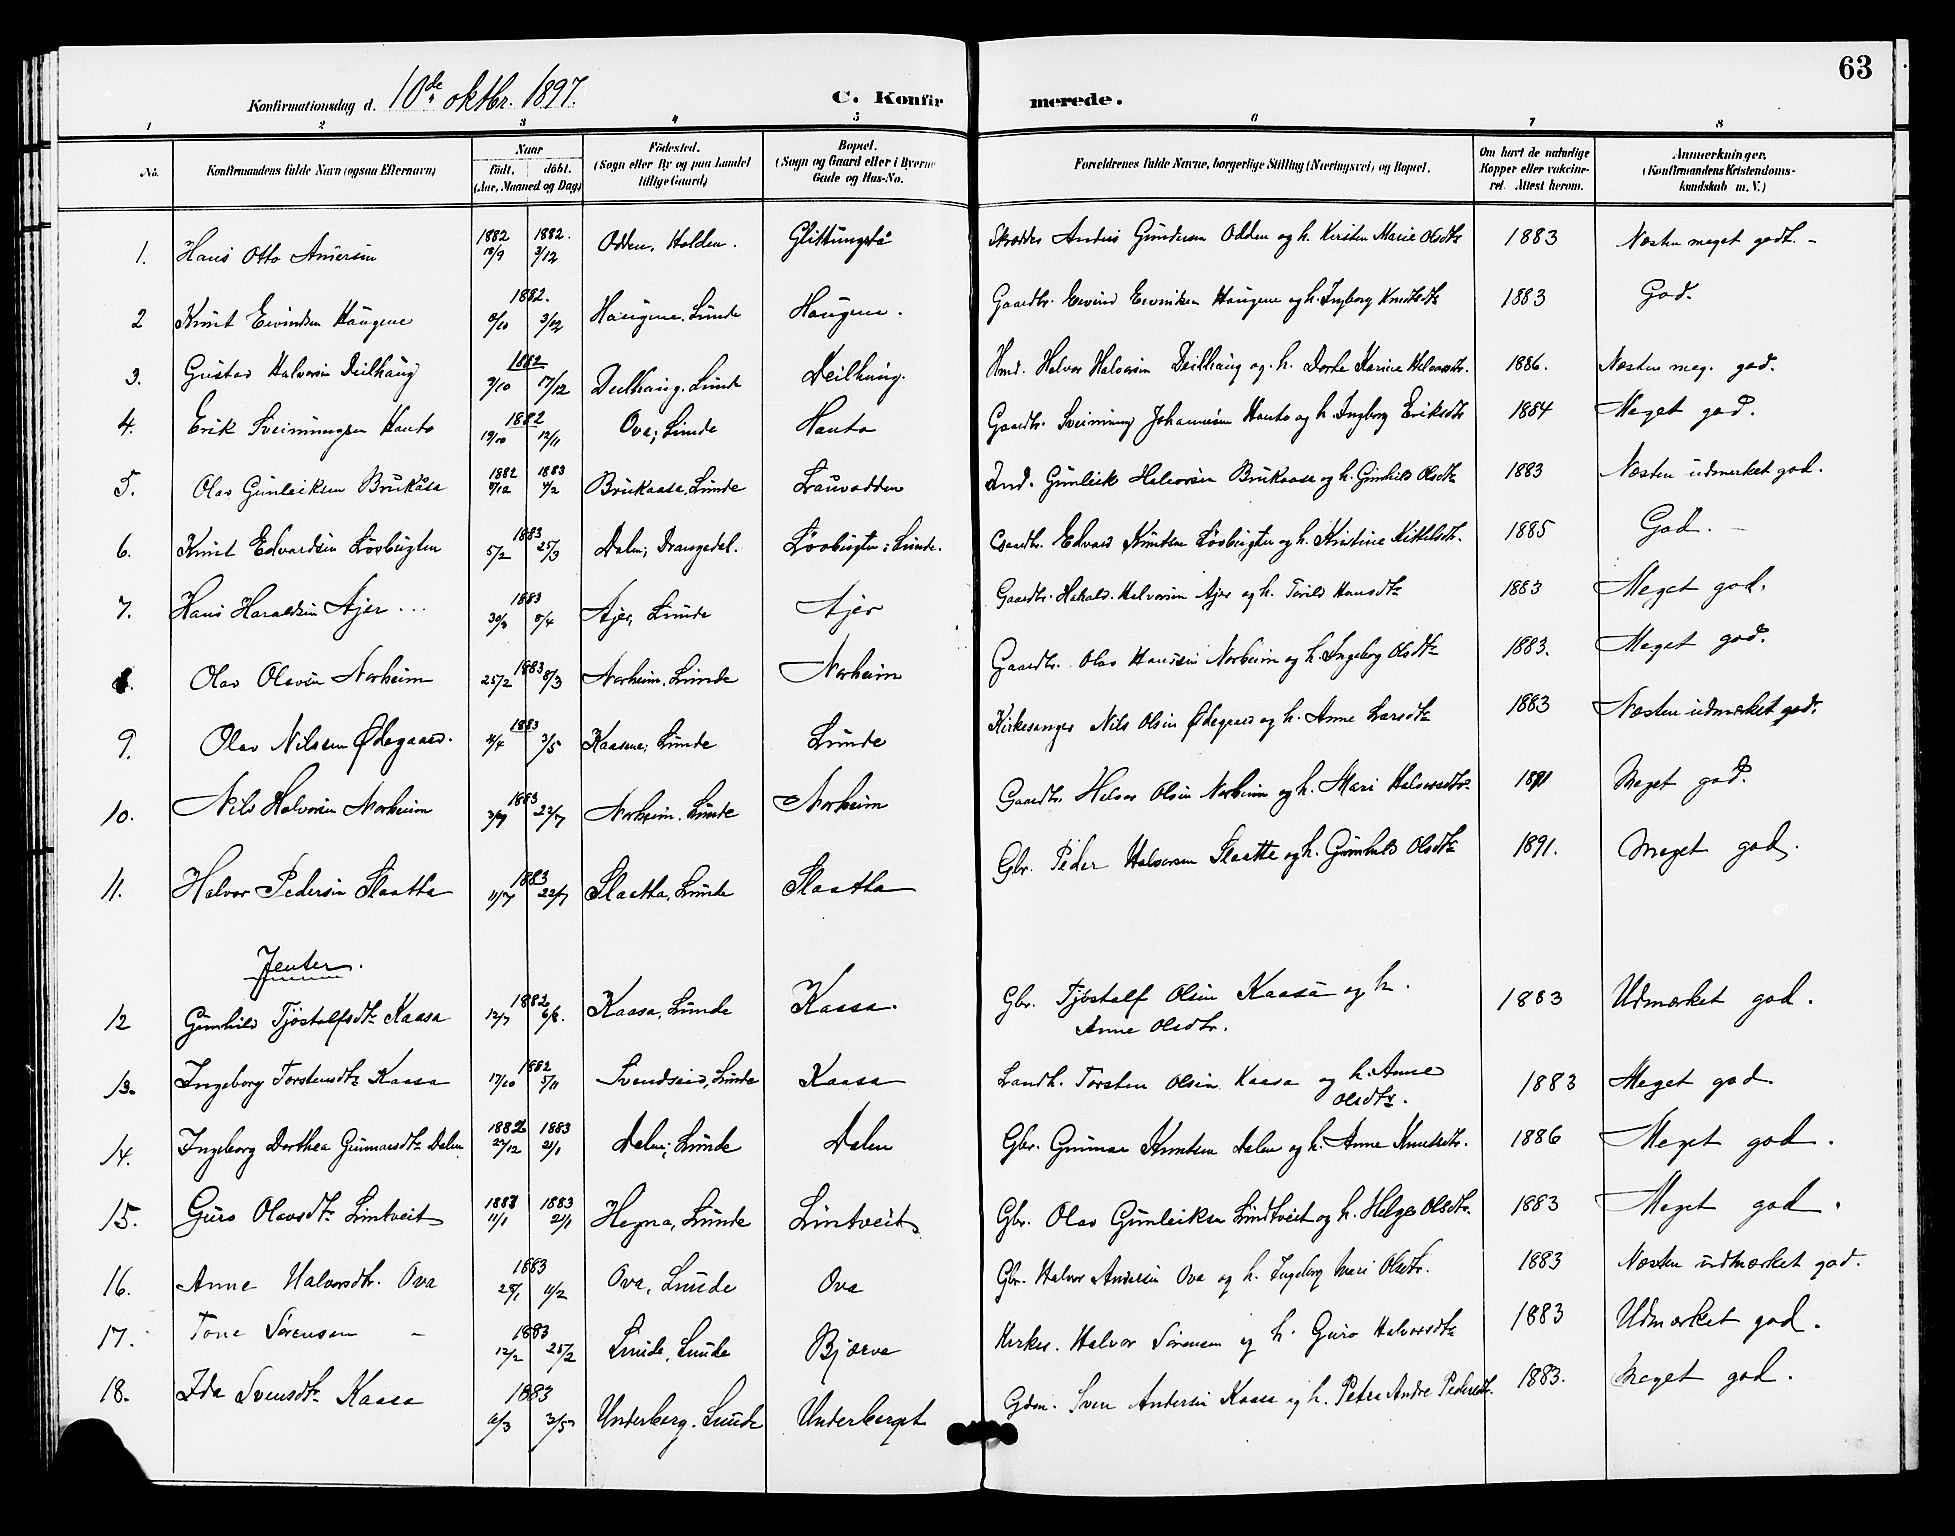 63
Konfirmationsdag d. 10de oktbr. 1897.
C. Konfirmerede.
1 2 3 4 5 6 7 8
No. Konfirmandens fulde Navn (ogsaa Efternavn) Naar født. døbt. (Aar, Maaned og Dag) Födested. (Sogn eller By og paa Landet tillige Gaard) Bopæl. (Sogn og Gaard eller i Byerne Gade og Hus-No. Forældrenes fulde Navne, borgerlige Stilling (Næringsvei) og Bopæl. Om havt de naturlige Kopper eller vakcineret. Attest herom. Anmerkninger. (Konfirmandens Kristendomskundskab m. V.)
1. Hans Otto Andersen 1882 1882. 3/12 Odden, Holden. Anders Gundersen Odden og h. Kirsten Marie Olsdtr 1883 Næsten meget godt. -
2 Knut Eivindsen Haugene 1882. Haugene, Lunde Haugene. Gaardbr. Eivind Eivindsen Haugene og h. Ingborg Knutsdtr 1883 God.
3. Gustav Halvorsen Deilhaug 1882 9/10 17/12 Deilhaug, Lunde Deilhaug. Hmd. Halvor Halvorsen Deilhaug og h. Dorthe Karine 1886. Næsten meg. god.
4. Erik Sveinungsen Hauto 1882 19/10 12/11 Ova, Lunde Hauto Gaardbr. Sveinung Johannesen Hauto og h. Ingborg Eriksdtr 1884 Meget god.
5. Olav Gunleiksen Brukåsa 1882 1883 4/2 Brukaasa, Lunde Lauvodden Ind. Gunleik Halvorsen Brukaasa og h. Gunhild Olsdtr 1883 Næsten udmerket god.
6. Knut Edvardsen Lövbugten 1883 5/2 25/3 Dalen, Drangedal. Lövbugten i Lunde. Gaardbr. Edvard Knutsen Lövbugten og h. Kristine Kittilsdtr. 1885 God. -
7. Hans Haraldsen Ajer ... 1883 30/3 8/4 Ajer, Lunde Ajer Gaardbr. Harald Halvorsen Ajer og h. Torild Hansdtr 1883 Meget god.
8. Olav Olavsen Norheim 1883 25/2 8/3 Norheim, Lunde Norheim Gaardbr. Olav Hanssen Norheim og h. Ingeborg Olsdtr 1883. Meget god.
9. Olav Nilssen Ødegaard. 1883 3/5 Kaasene, Lunde Lunde Kirkesanger Nils Olsen Ødegaard og h. Anne Larsdtr 1883 Næsten udmærket god.
10. Nils Halvorsen Norheim 1883 22/7 Norheim, Lunde Norheim Gaardbr. Halvor Olsen Norheim og h. Mari Halvorsdtr. 1891 Meget god.
11. Halvor Pedersen Slaatta 1883 11/7 22/7 Slaatta, Lunde Slaatta Gbr. Peder Halvorsen Slaatta og h. Gunhild Olsdtr 1891. Meget god.
Jenter.
12 Gunhild Tjöstolfsdtr Kaasa 1882 12/7 6/8. Kaasa, Lunde Kaasa. Gbr. Tjöstolf Olsen Kaasa og h. Anne Olsdtr. 1883 Udmærket god.
13. Ingeborg Torstensdtr Kaasa 1882 17/10 5/11 Svendseid, Lunde Kaasa Landh. Torsten Olsen Kaasa og h. Anne Olsdtr. 1883 Meget god.
14. Ingeborg Dorthea Gunnarsdtr Dalen 1882 1883 27/12 21/1 Dalen, Lunde Dalen Gbr. Gunnar Knutsen Dalen og h. Anne Knutsdtr. 1886 Meget god.
15. Guro Olavsdtr Lintveit 1883 1883 11/1 21/1 Hegna, Lunde Lintveit Gbr. Olav Gunleiksen Lindtveit og h. Helge Olsdtr. 1883 Meget god.
16. Anne Halvorsdtr. Ova 1883 28/1 11/2 Ova, Lunde Ova Gbr. Halvor Andersen Ova og h. Ingeborg Mari Olsdtr. 1883 Næsten udmærket god.
17. Tone Sørensen - 1883 12/2 25/2 Lunde, Lunde Bjærva Kirkes. Halvor Sørensen og h. Guro Halvorsdtr 1883 Udmærket god.
18. Ida Svensdtr Kaasa 1883 6/3 3/5 Underberg, Lunde Underberget Gdm. Sven Andersen Kaasa og h. Petra Andre Pedersdtr. 1883. Meget god.